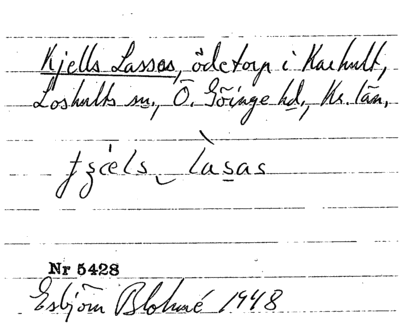 Kjells Lassas, ödetorp i Kaehult,
Loshults sn., Ö. Göinge hd., Kr. län.
tʒiels ̮ lasas
Nr 5428
Esbjörn Blohmé 1948